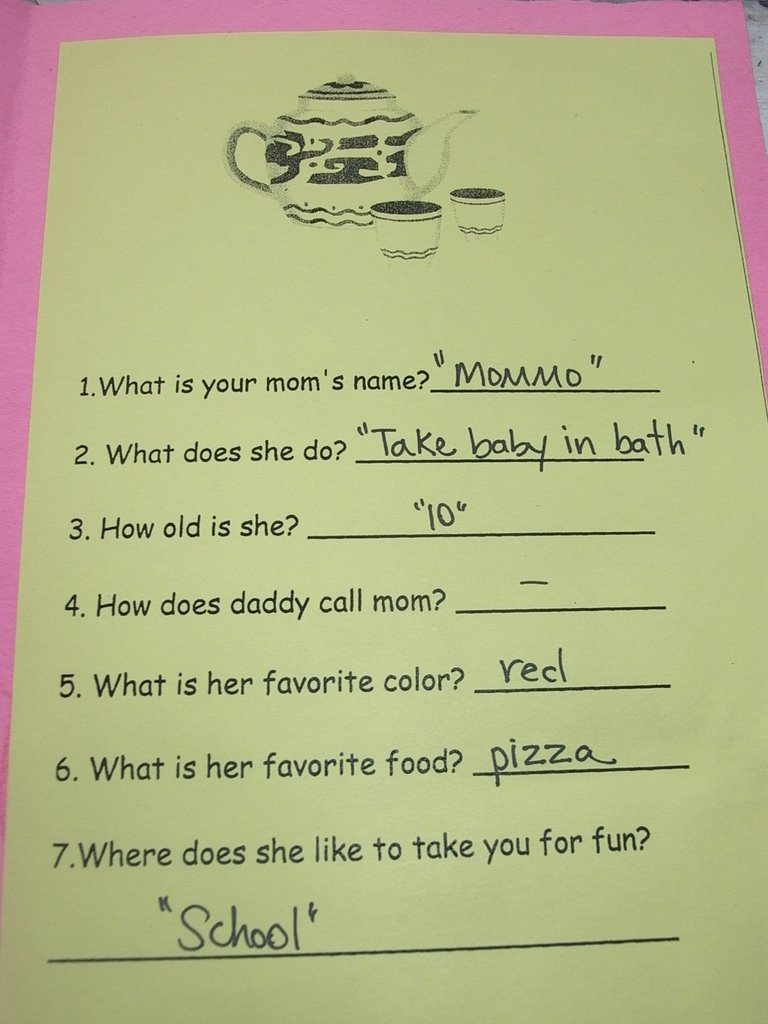 1.What is your mom's name? "MOMMO"
2. What does she do? "Take baby in bath"
3. How old is she? "10"
4. How does daddy call mom? –
5. What is her favorite color? red
6. What is her favorite food? pizza
7.Where does she like to take you for fun?
"School"